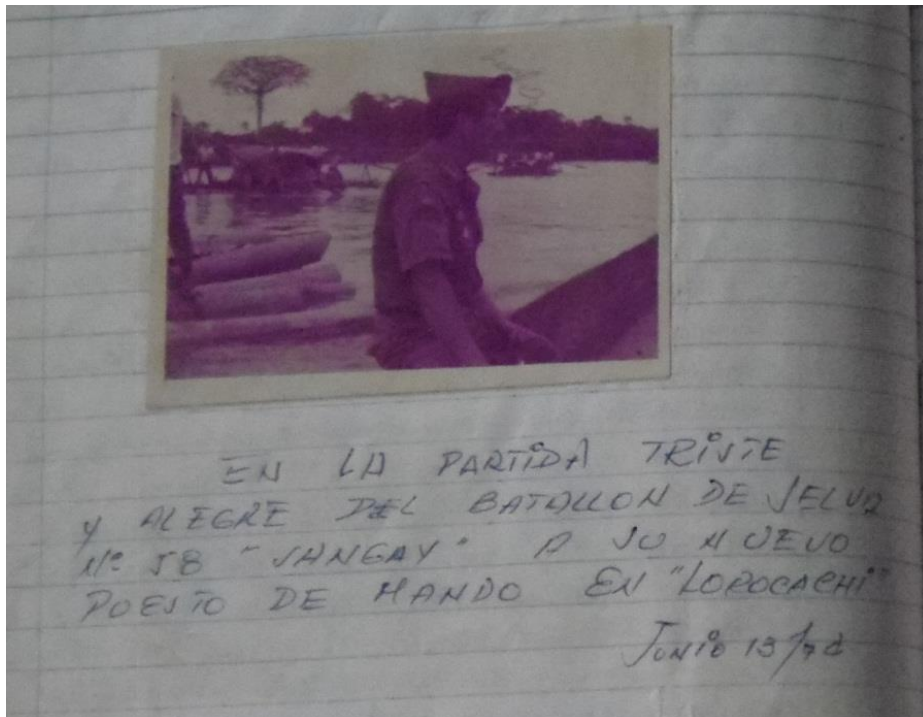 EN LA PARTIDA TRISTE
Y ALEGRE DEL BATALLON DE SELVA
Nº 58 "SANGAY" A SU NUEVO
PUESTO DE MANDO EN "LOROCACHI"
JUNIO 13